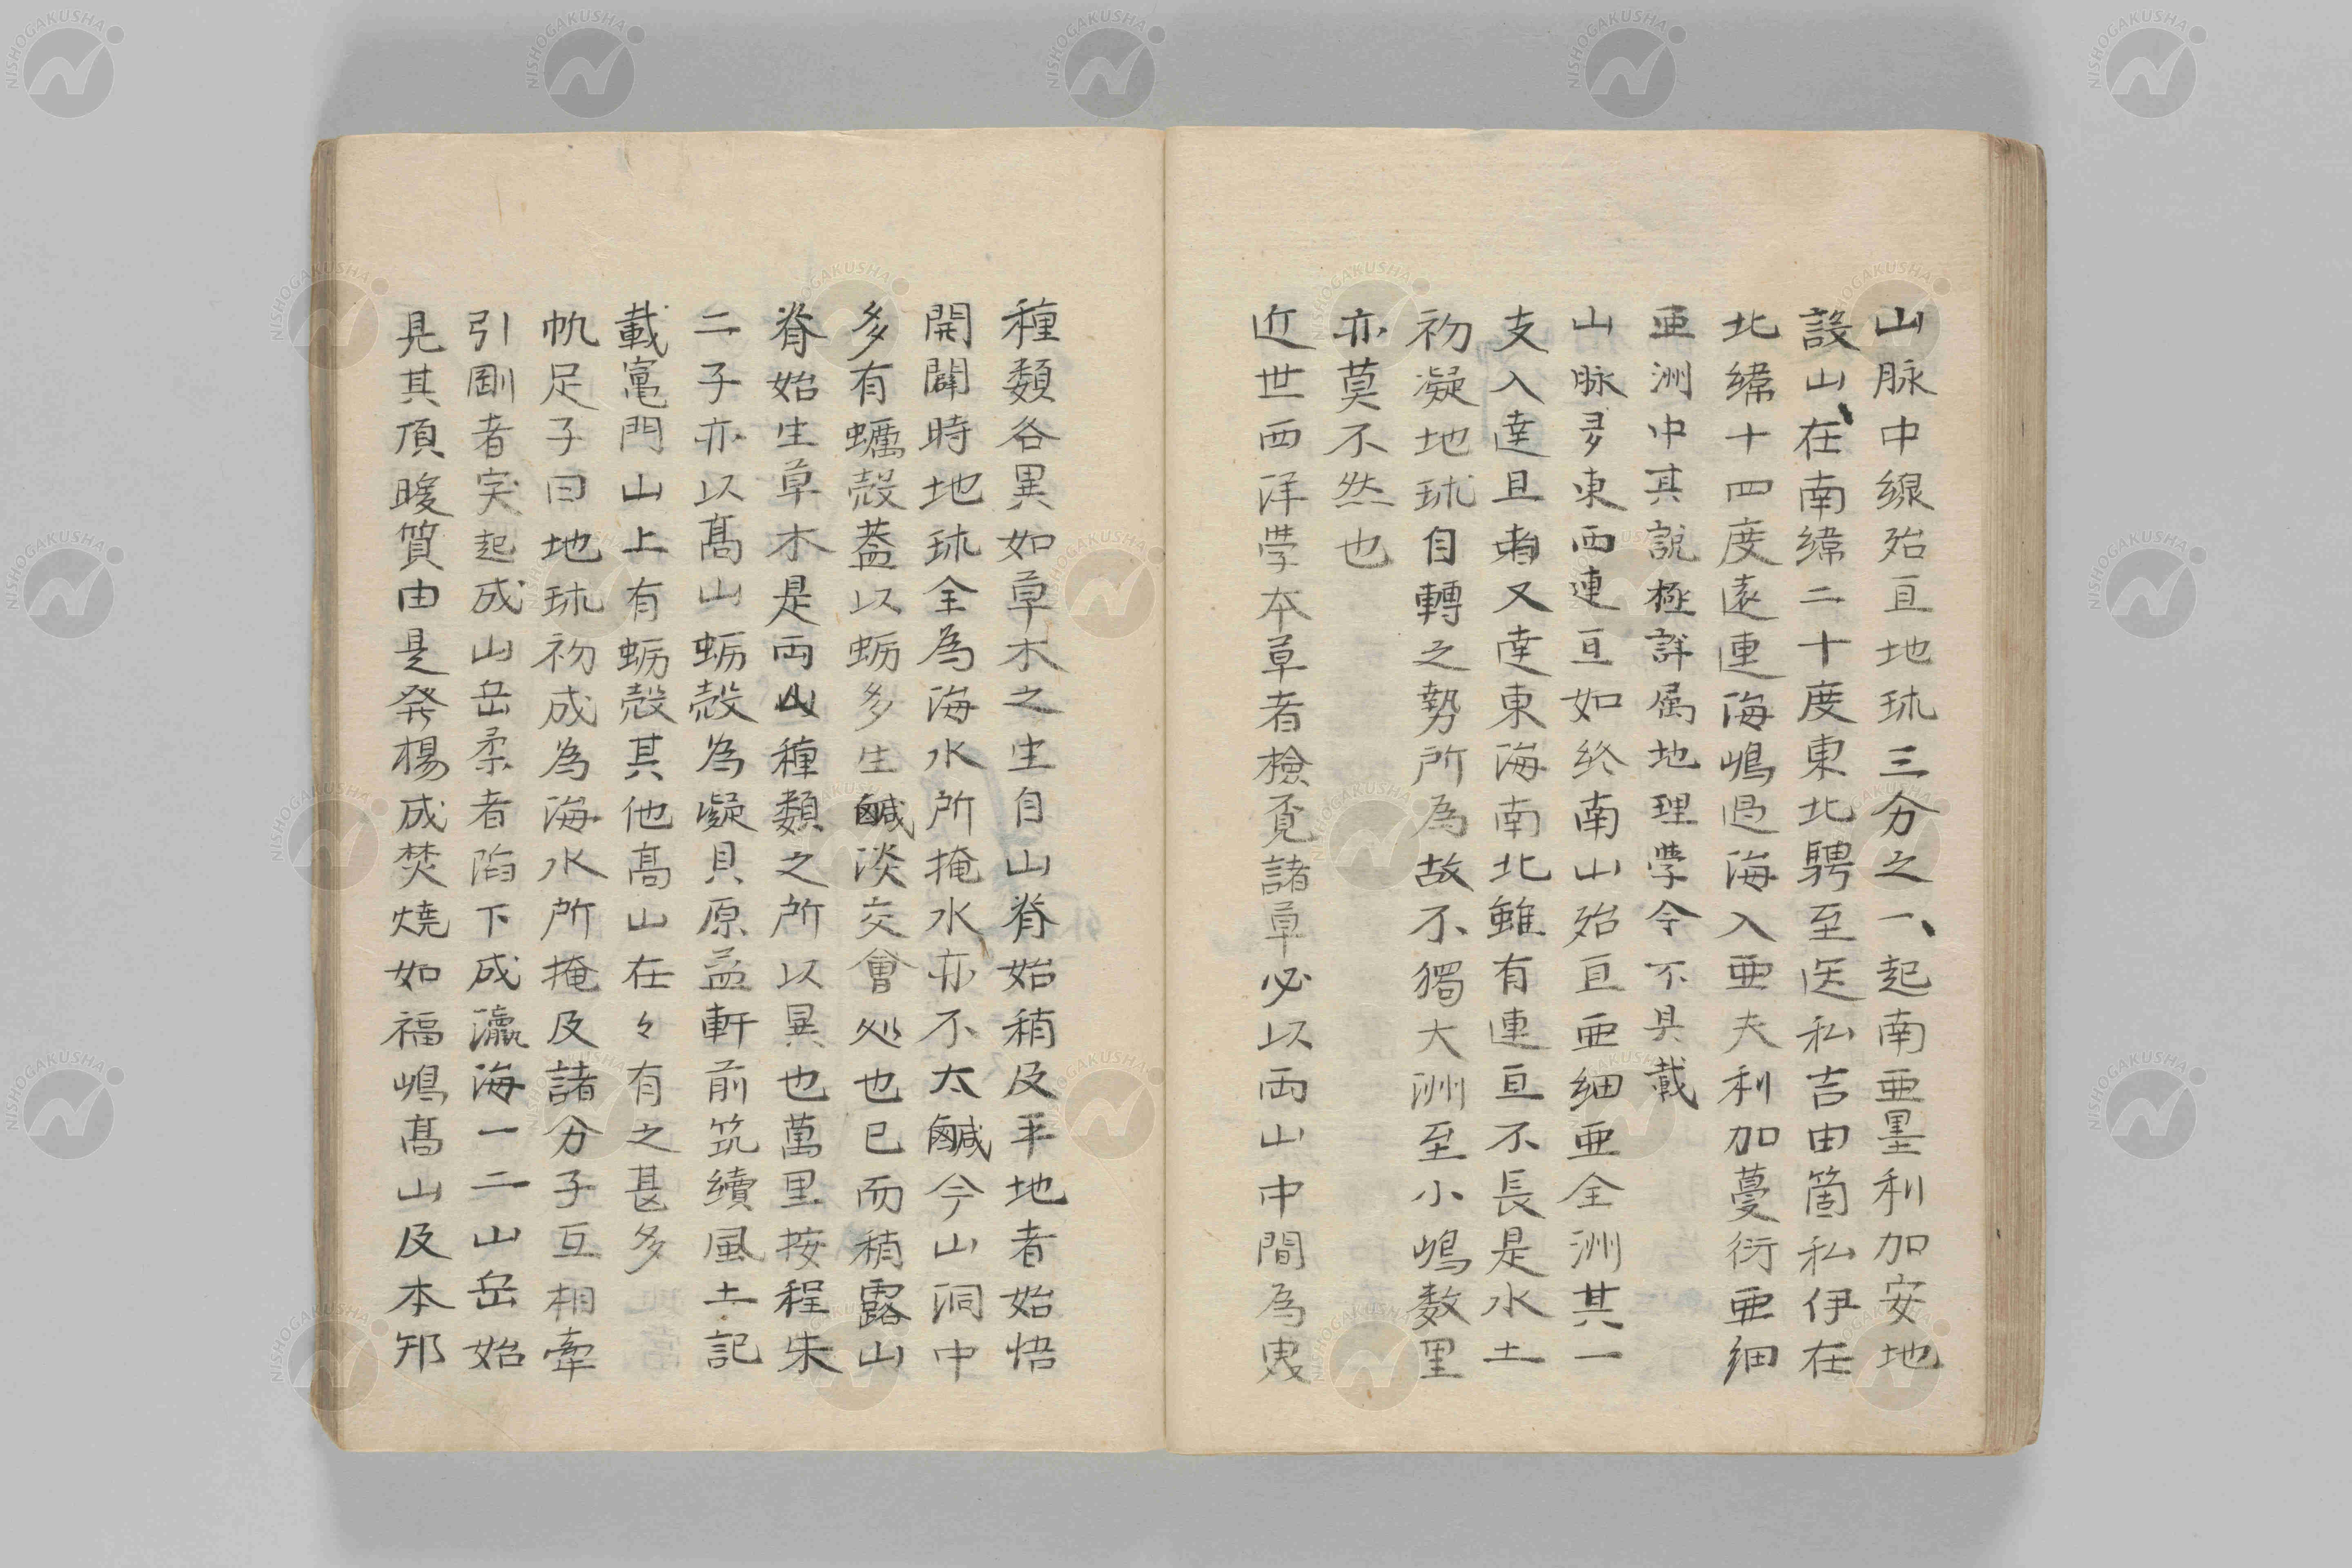 山脉中線殆亘地球三分之一、起南亜墨利加安地
設山、在南緯二十度東北騁至迭私吉由箇私伊在
北緯十四度遠連海嶋過海入亜夫利加蔓衍亜細
亜洲中其説極詳属地理學今不具載
山脉多東西連亘如終南山殆亘亜細亜全洲其一
支入達且又達東海南北雖有連亘不長是水土
初凝地球自轉之勢所為故不獨大洲至小嶋数里
亦莫不然也
近世西洋學本草者檢覔諸草必以両山中間為界
種類各異如草木之生自山脊始稍及平地者始悟
開闢時地球全為海水所掩水亦不太鹹今山洞中
多有蠣殻蓋以蛎多生鹹淡交會処也已而稍露山
脊始生草木是両山種類之所以異也萬里按程朱
二子亦以髙山蛎殻為凝貝原益軒前筑續風土記
載竃門山上有蛎殻其他髙山在々有之甚多
帆足子曰地球初成為海水所掩及諸分子互相牽
引剛者突起成山岳柔者陷下成瀛海一二山岳始
見其頂暖質由是発楊成焚燒如福嶋髙山及本邦
NISHOGAKUSHA